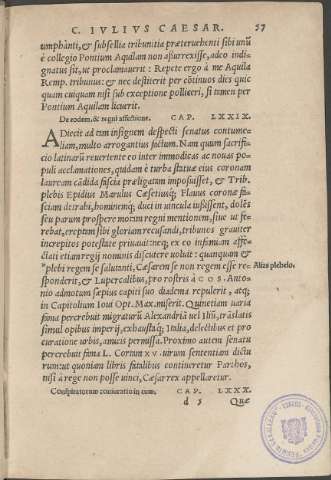 C. IVLIVS CAESAR. 57
umphanti, & subsellia tribunitia præteruehenti sibi unũ
è collegio Pontium Aquilam non assurrexisse, adeo indi-
gnatus sit, ut proclamauerit: Repete ergo à me Aquila
Remp. tribunus: & nec destiterit per cõtinuos dies quic
quam cuiquam nisi sub exceptione polliceri, si tamen per
Pontium Aquilam licuerit.
De eodem, & regni affectione. CAP. LXXIX.
ADiecit ad tam insignem despecti senatus contume-
liam, multo arrogantius factum. Nam quum sacrifi-
cio latinarũ reuertente eo inter immodicas ac nouas po-
puli acclamationes, quidam è turba statuæ eius coronam
lauream cãdida fascia præligatam imposuisset, & Trib.
plebis Epidius Marulus Cæsetiusq; Flauus coronæ fa-
sciam detrahi, hominemq; duci in uincula iussissent, dolẽs
seu parum prospere motam regni mentionem, siue ut fe-
rebat, ereptam sibi gloriam recusandi, tribunos grauiter
increpitos potestate priuauit: neq; ex eo infamiam affe-
ctati etiam regij nominis discutere ualuit: quanquam &
plebi regem se salutanti, Cæsarem se non regem esse re- Alias plebeio.
sponderit, & Lupercalibus, pro rostris à COS. Anto-
nio admotum sæpius capiti suo diadema repulerit, atq;
in Capitolium Ioui Opt. Max. miserit. Quinetiam uaria
fama percrebuit migraturũ Alexandriã uel Iliũ, trãslatis
simul opibus imperij, exhaustaq; Italia delectibus et pro
curatione urbis, amicis permissa. Proximo autem senatu
percrebuit fama L. Cottam xv. uirum sententiam dictu
rum: ut quoniam libris fatalibus contineretur Parthos,
nisi à rege non posse uinci, Cæsar rex appellaretur.
Conspiratorum coniuratio in eum. CAP. LXXX.
d 5 Quæ